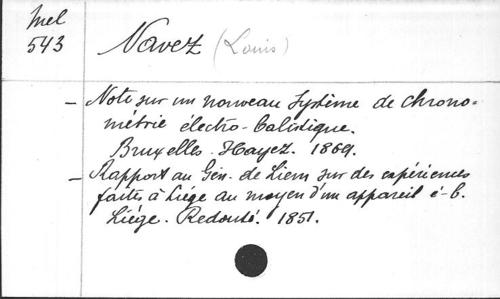 Mel
543
Navez (Louis)
- Note sur un nouveau Système de Chrono-
métrie électro-balistique.
Bruxelles. Hayez. 1869.
- Rapport au Gén. de Liem sur des expériences
faites à Liége au moyen d'un appareil é-b.
Liége. Redouté. 1851.